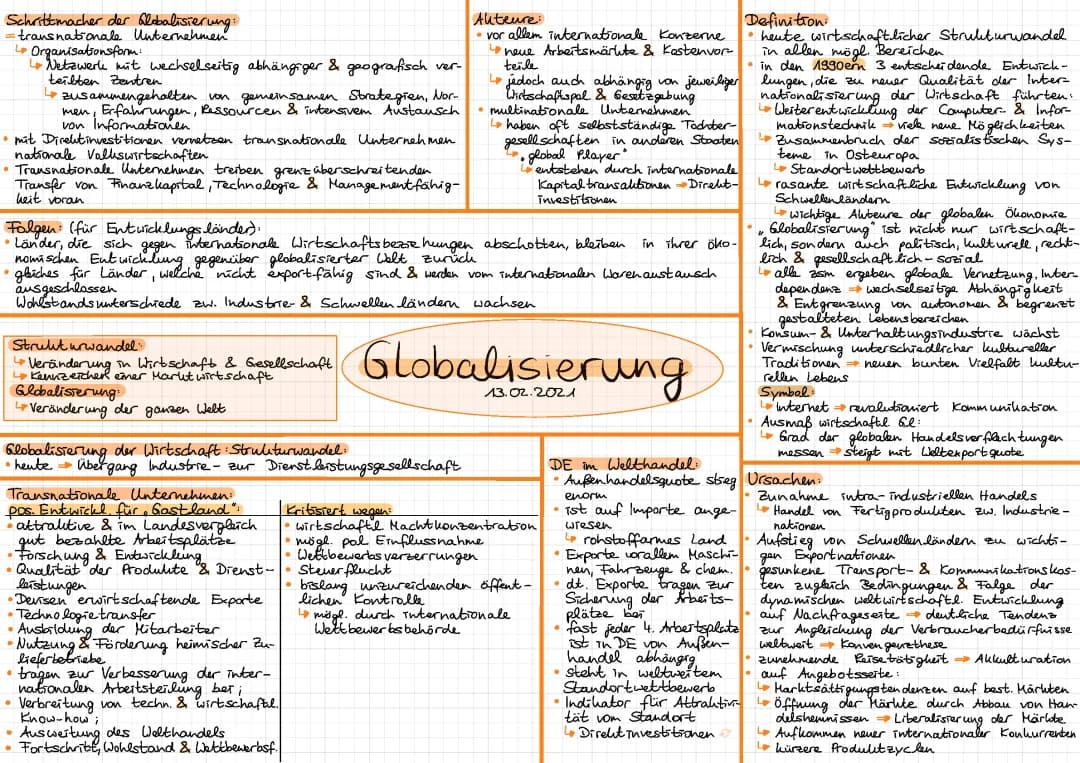 Schrittmacher der Globalisierung:
= transnationale Unternehmen
↳ Organisationsform:
↳ Netzwerk mit wechselseitig abhängiger & geografisch ver-
teilten Zentren
↳ zusammengehalten von gemeinsamen Strategien, Nor-
men, Erfahrungen, Ressourcen & intensivem Austausch
von Informationen
• mit Direktinvestitionen vernetzen transnationale Unternehmen
nationale Volkswirtschaften
• Transnationale Unternehmen treiben grenzüberschreitenden
Transfer von Finanzkapital, Technologie & Managementfähig-
keit voran
Akteure:
• vor allem internationale Konzerne
↳ neue Arbeitsmärkte & Kostenvor-
teile
↳ jedoch auch abhängig von jeweiliger
Wirtschaftspol & Gesetzgebung
• multinationale Unternehmen
↳ haben oft selbstständige Tochter-
gesellschaften in anderen Staaten
↳ „global Player"
↳ entstehen durch internationale
Kapitaltransaktionen ⇒ Direkt-
investitionen
Definition:
• heute wirtschaftlicher Strukturwandel
in allen mögl. Bereichen
• in den 1990ern 3 entscheidende Entwick-
lungen, die zu neuer Qualität der Inter-
nationalisierung der Wirtschaft führten:
↳ Weiterentwicklung der Computer- & Infor-
mationstechnik ⇒ viele neue Möglichkeiten
↳ Zusammenbruch der sozialistischen Sys-
teme in Osteuropa
↳ Standortwettbewerb
↳ rasante wirtschaftliche Entwicklung von
Schwellenländern
↳ wichtige Akteure der globalen Ökonomie
• „Globalisierung" ist nicht nur wirtschaft-
lich, sondern auch politisch, kulturell, recht-
lich & gesellschaftlich-sozial
↳ alle zsm ergeben globale Vernetzung, Inter-
dependenz ⇒ wechselseitige Abhängigkeit
& Entgrenzung von autonomen & begrenzt
gestalteten Lebensbereichen
• Konsum- & Unterhaltungsindustrie wächst
• Vermischung unterschiedlicher kultureller
Traditionen ⇒ neuen bunten Vielfalt kultu-
rellen Lebens
Symbol:
↳ Internet ⇒ revolutioniert Kommunikation
• Ausmaß wirtschaftl Gl:
↳ Grad der globalen Handelsverflechtungen
messen ⇒ steigt mit Weltexportquote
Folgen: (für Entwicklungsländer):
• Länder, die sich gegen internationale Wirtschaftsbeziehungen abschotten, bleiben in ihrer öko-
nomischen Entwicklung gegenüber globalisierter Welt zurück
• gleiches für Länder, welche nicht export-fähig sind & werden vom internationalen Warenaustausch
ausgeschlossen
Wohlstandsunterschiede zw. Industrie- & Schwellenländern wachsen
Strukturwandel:
↳ Veränderung in Wirtschaft & Gesellschaft
↳ Kennzeichen einer Marktwirtschaft
Globalisierung:
↳ Veränderung der ganzen Welt
Globalisierung
13.02.2021
Globalisierung der Wirtschaft: Strukturwandel:
• heute ⇒ Übergang Industrie- zur Dienstleistungsgesellschaft
Transnationale Unternehmen:
pos. Entwickl. für „Gastland":
• attraktive & im Landesvergleich
gut bezahlte Arbeitsplätze
• Forschung & Entwicklung
• Qualität der Produkte & Dienst-
leistungen
• Devisen erwirtschaftende Exporte
• Technologietransfer
• Ausbildung der Mitarbeiter
• Nutzung & Förderung heimischer Zu-
lieferbetriebe
• tragen zur Verbesserung der inter-
nationalen Arbeitsteilung bei;
• Verbreitung von techn. & wirtschaftl.
Know-how;
• Ausweitung des Welthandels
• Fortschritt, Wohlstand & Wettbewerbsf.
Kritisiert wegen:
• wirtschaftl Machtkonzentration
• mögl. pol Einflussnahme
• Wettbewerbsverzerrungen
• Steuerflucht
• bislang unzureichenden öffent-
lichen Kontrolle
↳ mögl. durch internationale
Wettbewerbsbehörde
DE im Welthandel:
• Außenhandelsquote stieg
enorm
• ist auf Importe ange-
wiesen
↳ rohstoffarmes Land
• Exporte vorallem Maschi-
nen, Fahrzeuge & chem.
• dt. Exporte tragen zur
Sicherung der Arbeits-
plätze bei
• fast jeder 4. Arbeitsplatz
ist in DE von Außen-
handel abhängig
• steht in weltweitem
Standortwettbewerb
• Indikator für Attraktivi-
tät vom Standort
↳ Direktinvestitionen
Ursachen:
• Zunahme intra-industriellen Handels
↳ Handel von Fertigprodukten zw. Industrie-
nationen
• Aufstieg von Schwellenländern zu wichti-
gen Exportnationen
• gesunkene Transport- & Kommunikationskos-
ten zugleich Bedingungen & Folge der
dynamischen weltwirtschaftl. Entwicklung
• auf Nachfrageseite ⇒ deutliche Tendenz
zur Angleichung der Verbraucherbedürfnisse
weltweit ⇒ Konvergenzthese
• zunehmende Reisetätigkeit ⇒ Akkulturation
• auf Angebotsseite:
↳ Marktsättigungstendenzen auf best. Märkten
↳ Öffnung der Märkte durch Abbau von Han-
delshemnissen ⇒ Liberalisierung der Märkte
↳ Aufkommen neuer internationaler Konkurrenten
↳ kürzere Produktzyclen